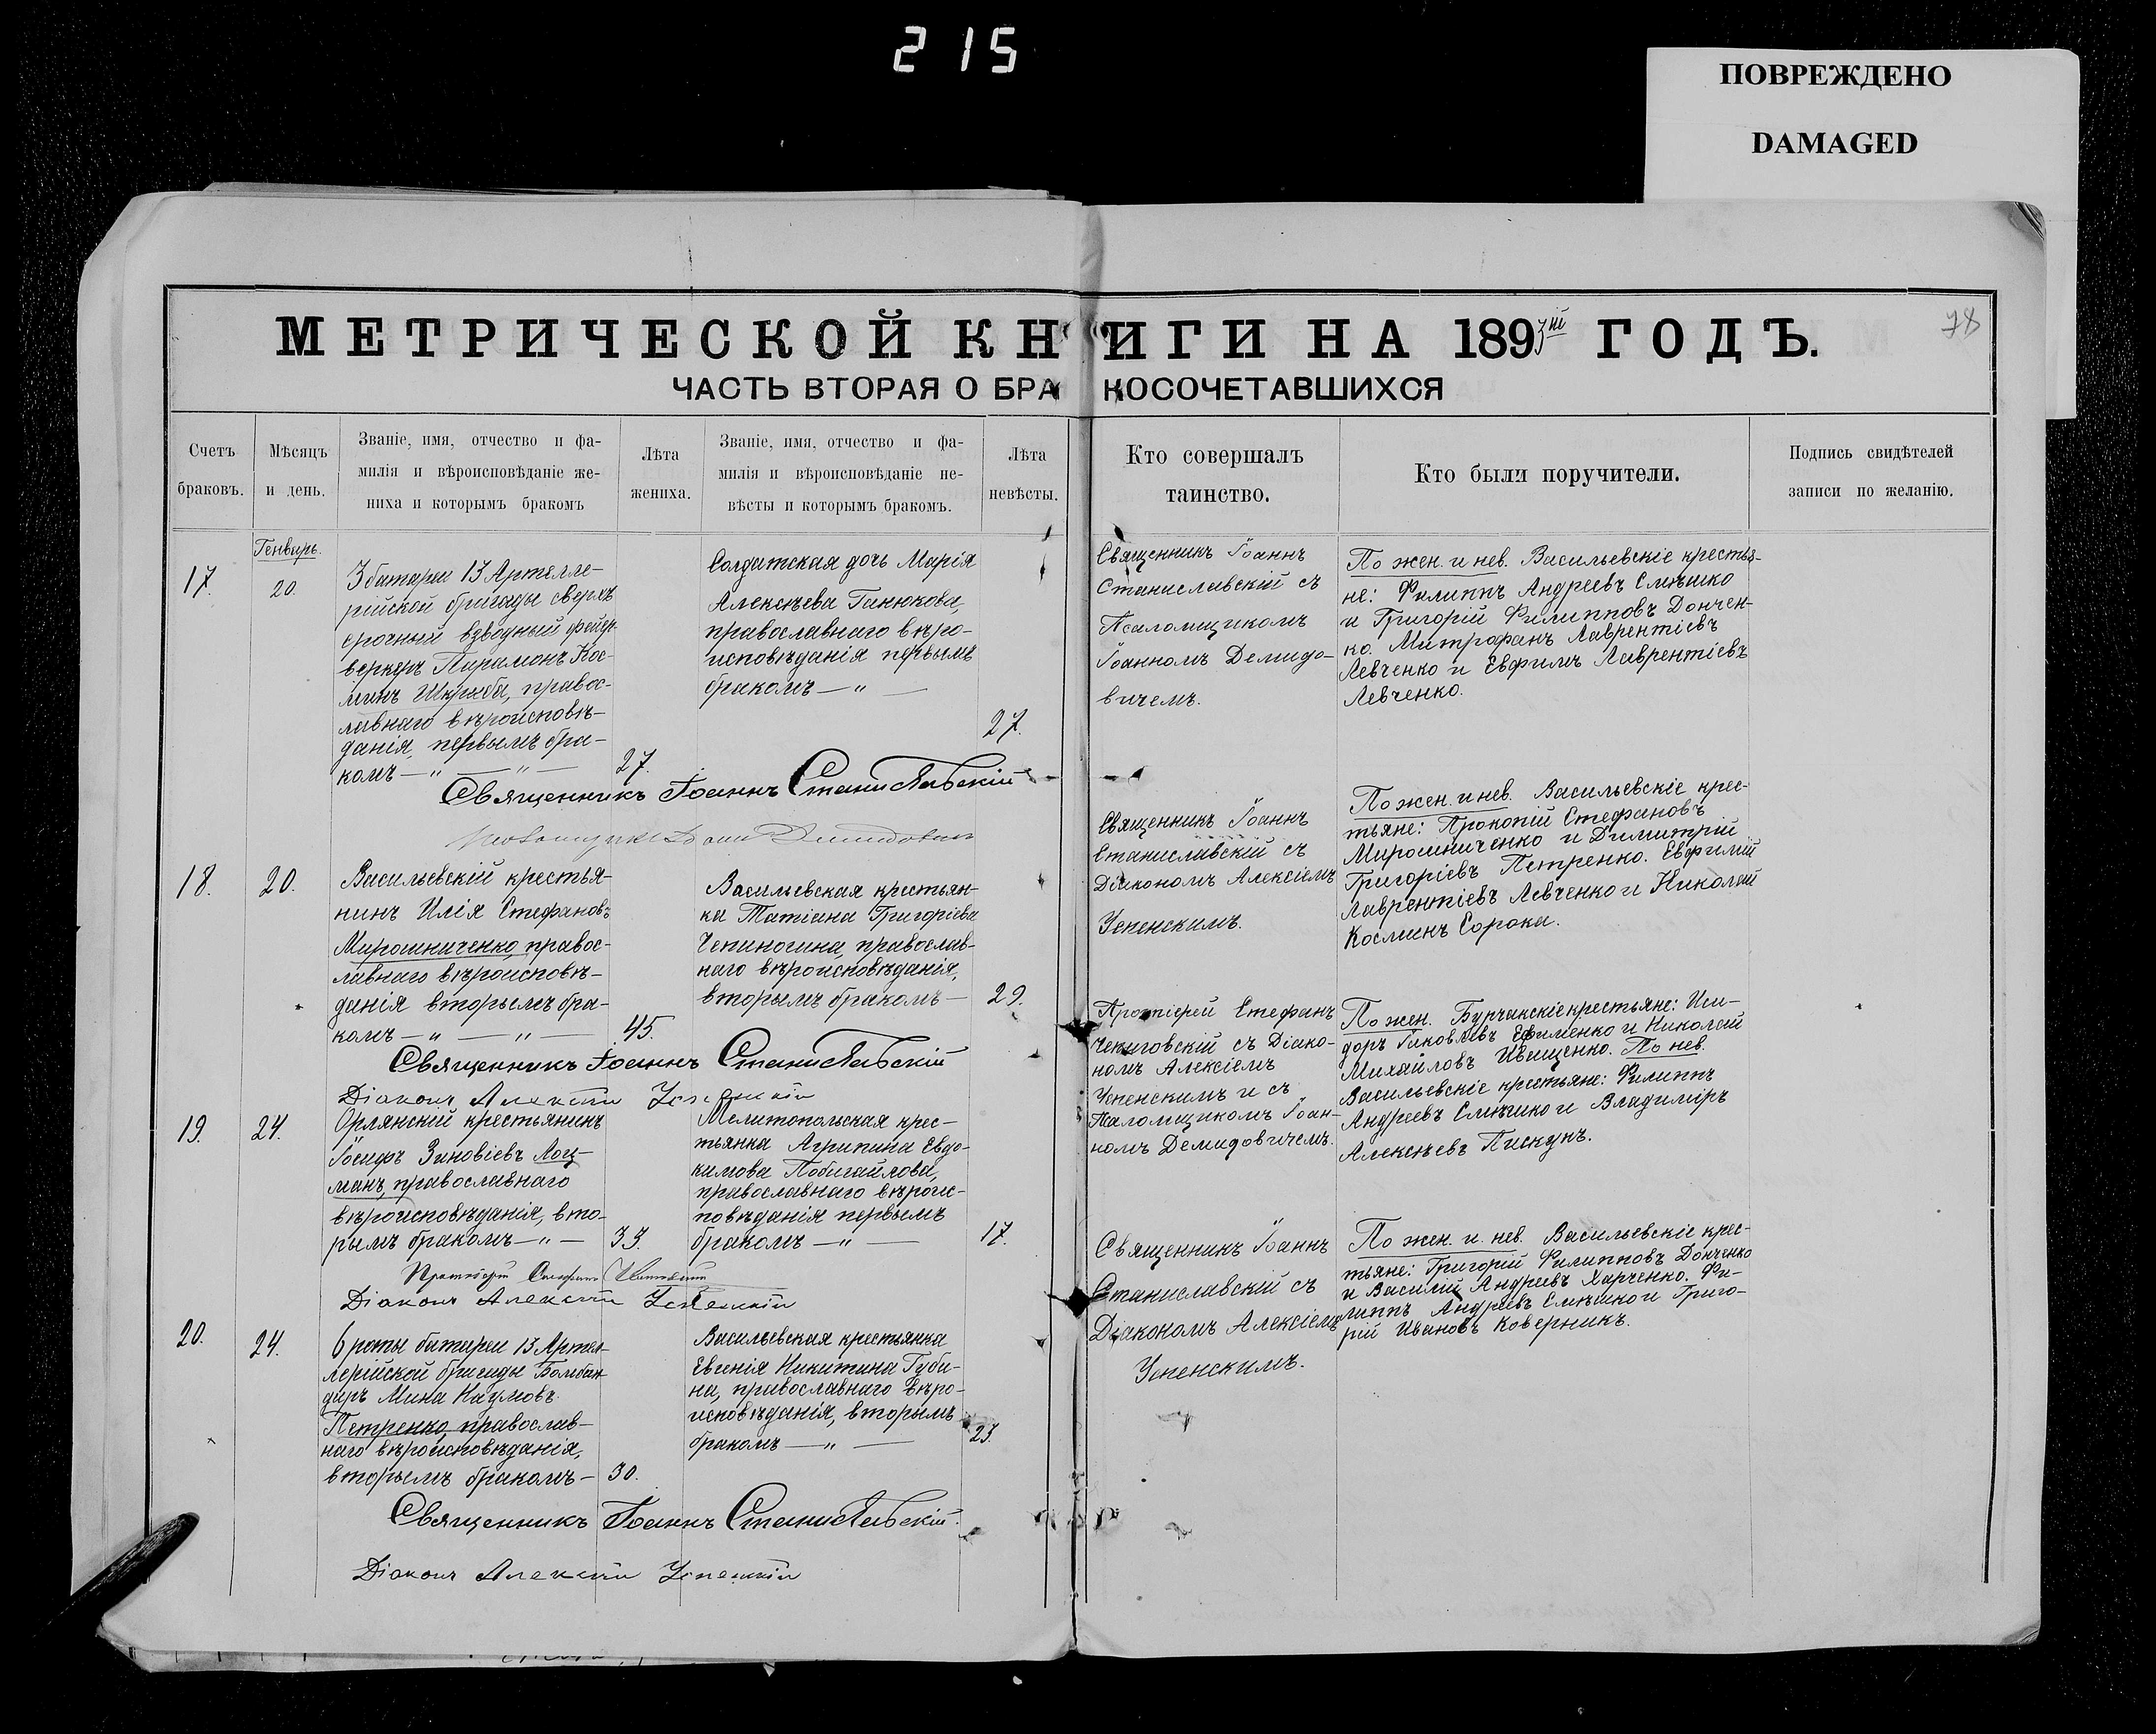 215
ПОВРЕЖДЕНО
DAMAGED
78
МЕТРИЧЕСКОЙ КНИГИ НА 1893ій ГОДЪ.
ЧАСТЬ ВТОРАЯ О БРАКОСОЧЕТАВШИХСЯ
Счетъ
браковъ.
Мѣсяцъ
и день.
Званіе, имя, отчество и фа-
милія и вѣроисповѣданіе же-
ниха и которымъ бракомъ
Лѣта
жениха.
Званіе, имя, отчество и фа-
милія и вѣроисповѣданіе не-
вѣсты и которымъ бракомъ.
Лѣта
невѣсты.
Кто совершалъ
таинство.
Кто были поручители.
Подпись свидѣтелей
записи по желанію.
Генварь.
17.
20.
3 батареи 13 Артелле-
рійской бригады сверхъ
срочный взводный фейер-
веркеръ Кос-
минъ правос-
лавнаго вѣроисповѣ-
данія, первымъ бра-
комъ — " — " —
27.
Солдатская дочь Марія
Алексѣева Ганюкова,
православнаго вѣро-
исповѣданія первымъ
бракомъ — " —
27.
Священникъ Іоаннъ
Станиславскій съ
Псаломщикомъ
Іоанномъ Демидо-
вичемъ.
По жен. и нев. Васильевскіе крестья-
не: Филиппъ Андреевъ Смѣшко
и Григорій Филипповъ Дончен-
ко. Митрофанъ Лаврентіевъ
Левченко и Евфимъ Лаврентіевъ
Левченко.
Священникъ Іоаннъ Станиславскій
18.
20.
Васильевскій крестья-
нинъ Илія Стефановъ
Мирошниченко, правос-
лавнаго вѣроисповѣ-
данія вторымъ бра-
комъ — " — " —
45.
Васильевская крестьян-
ка Татіана Григоріева
Чепиногина, православ-
наго вѣроисповѣданія,
вторымъ бракомъ —
29.
Священникъ Іоаннъ
Станиславскій съ
Діакономъ Алексіемъ
Успенскимъ.
По жен. и нев. Васильевскіе крес-
тьяне: Прокопій Стефановъ
Мирошниченко и Димитрій
Григоріевъ Петренко. Евфимій
Лаврентіевъ Левченко и Николай
Косминъ Сорока.
Священникъ Іоаннъ Станиславскій
Діаконъ Алексій Успенскій
19.
24.
Орлянскій крестьянинъ
Іосифъ Зиновіевъ Лоц-
манъ, православнаго
вѣроисповѣданія, вто-
рымъ бракомъ — " —
33.
Мелитопольская крес-
тьянка Агрипина Евдо-
кимова Побигайлова,
православнаго вѣроис-
повѣданія первымъ
бракомъ — " —
17.
Протоіерей Стефанъ
съ Діако-
номъ Алексіемъ
Успенскимъ и съ
Псаломщикомъ Іоан-
номъ Демидовичемъ.
По жен. Бурчанскіе крестьяне: Иси-
доръ Іаковлевъ Ефименко и Николай
Михайловъ Иващенко. По нев.
Васильевскіе крестьяне: Филиппъ
Андреевъ Смѣшко и Владиміръ
Алексѣевъ Пискунъ.
Протоіерей Стефанъ
Діаконъ Алексій Успенскій
20.
24.
6 роты батареи 13 Артел-
лерійской бригады Бомбан-
диръ Мина Наумовъ
Петренко, православ-
наго вѣроисповѣданія,
вторымъ бракомъ —
30.
Васильевская крестьянка
Евгенія Никитина Губи-
на, православнаго вѣро-
исповѣданія, вторымъ
бракомъ — " —
23.
Священникъ Іоаннъ
Станиславскій съ
Діакономъ Алексіемъ
Успенскимъ.
По жен. и нев. Васильевскіе крес-
тьяне: Григорій Филипповъ Донченко
и Василій Андреевъ Харченко. Фи-
липпъ Андреевъ Смѣшко и Григо-
рій Ивановъ Коверникъ.
Священникъ Іоаннъ Станиславскій.
Діаконъ Алексій Успенскій